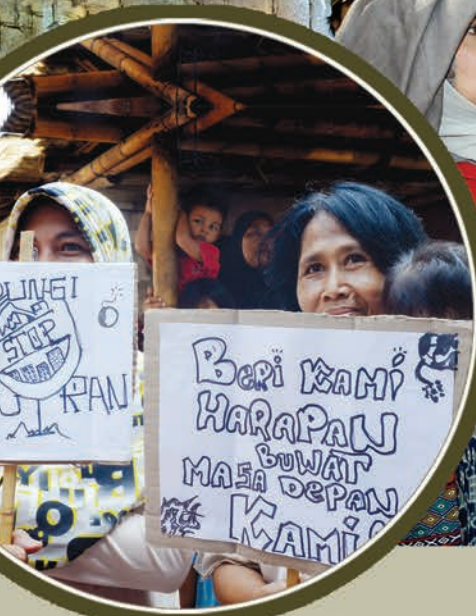 STOP
BERi KAMi
HARAPAN
BUWAT
MASA DEPAN
KAMi